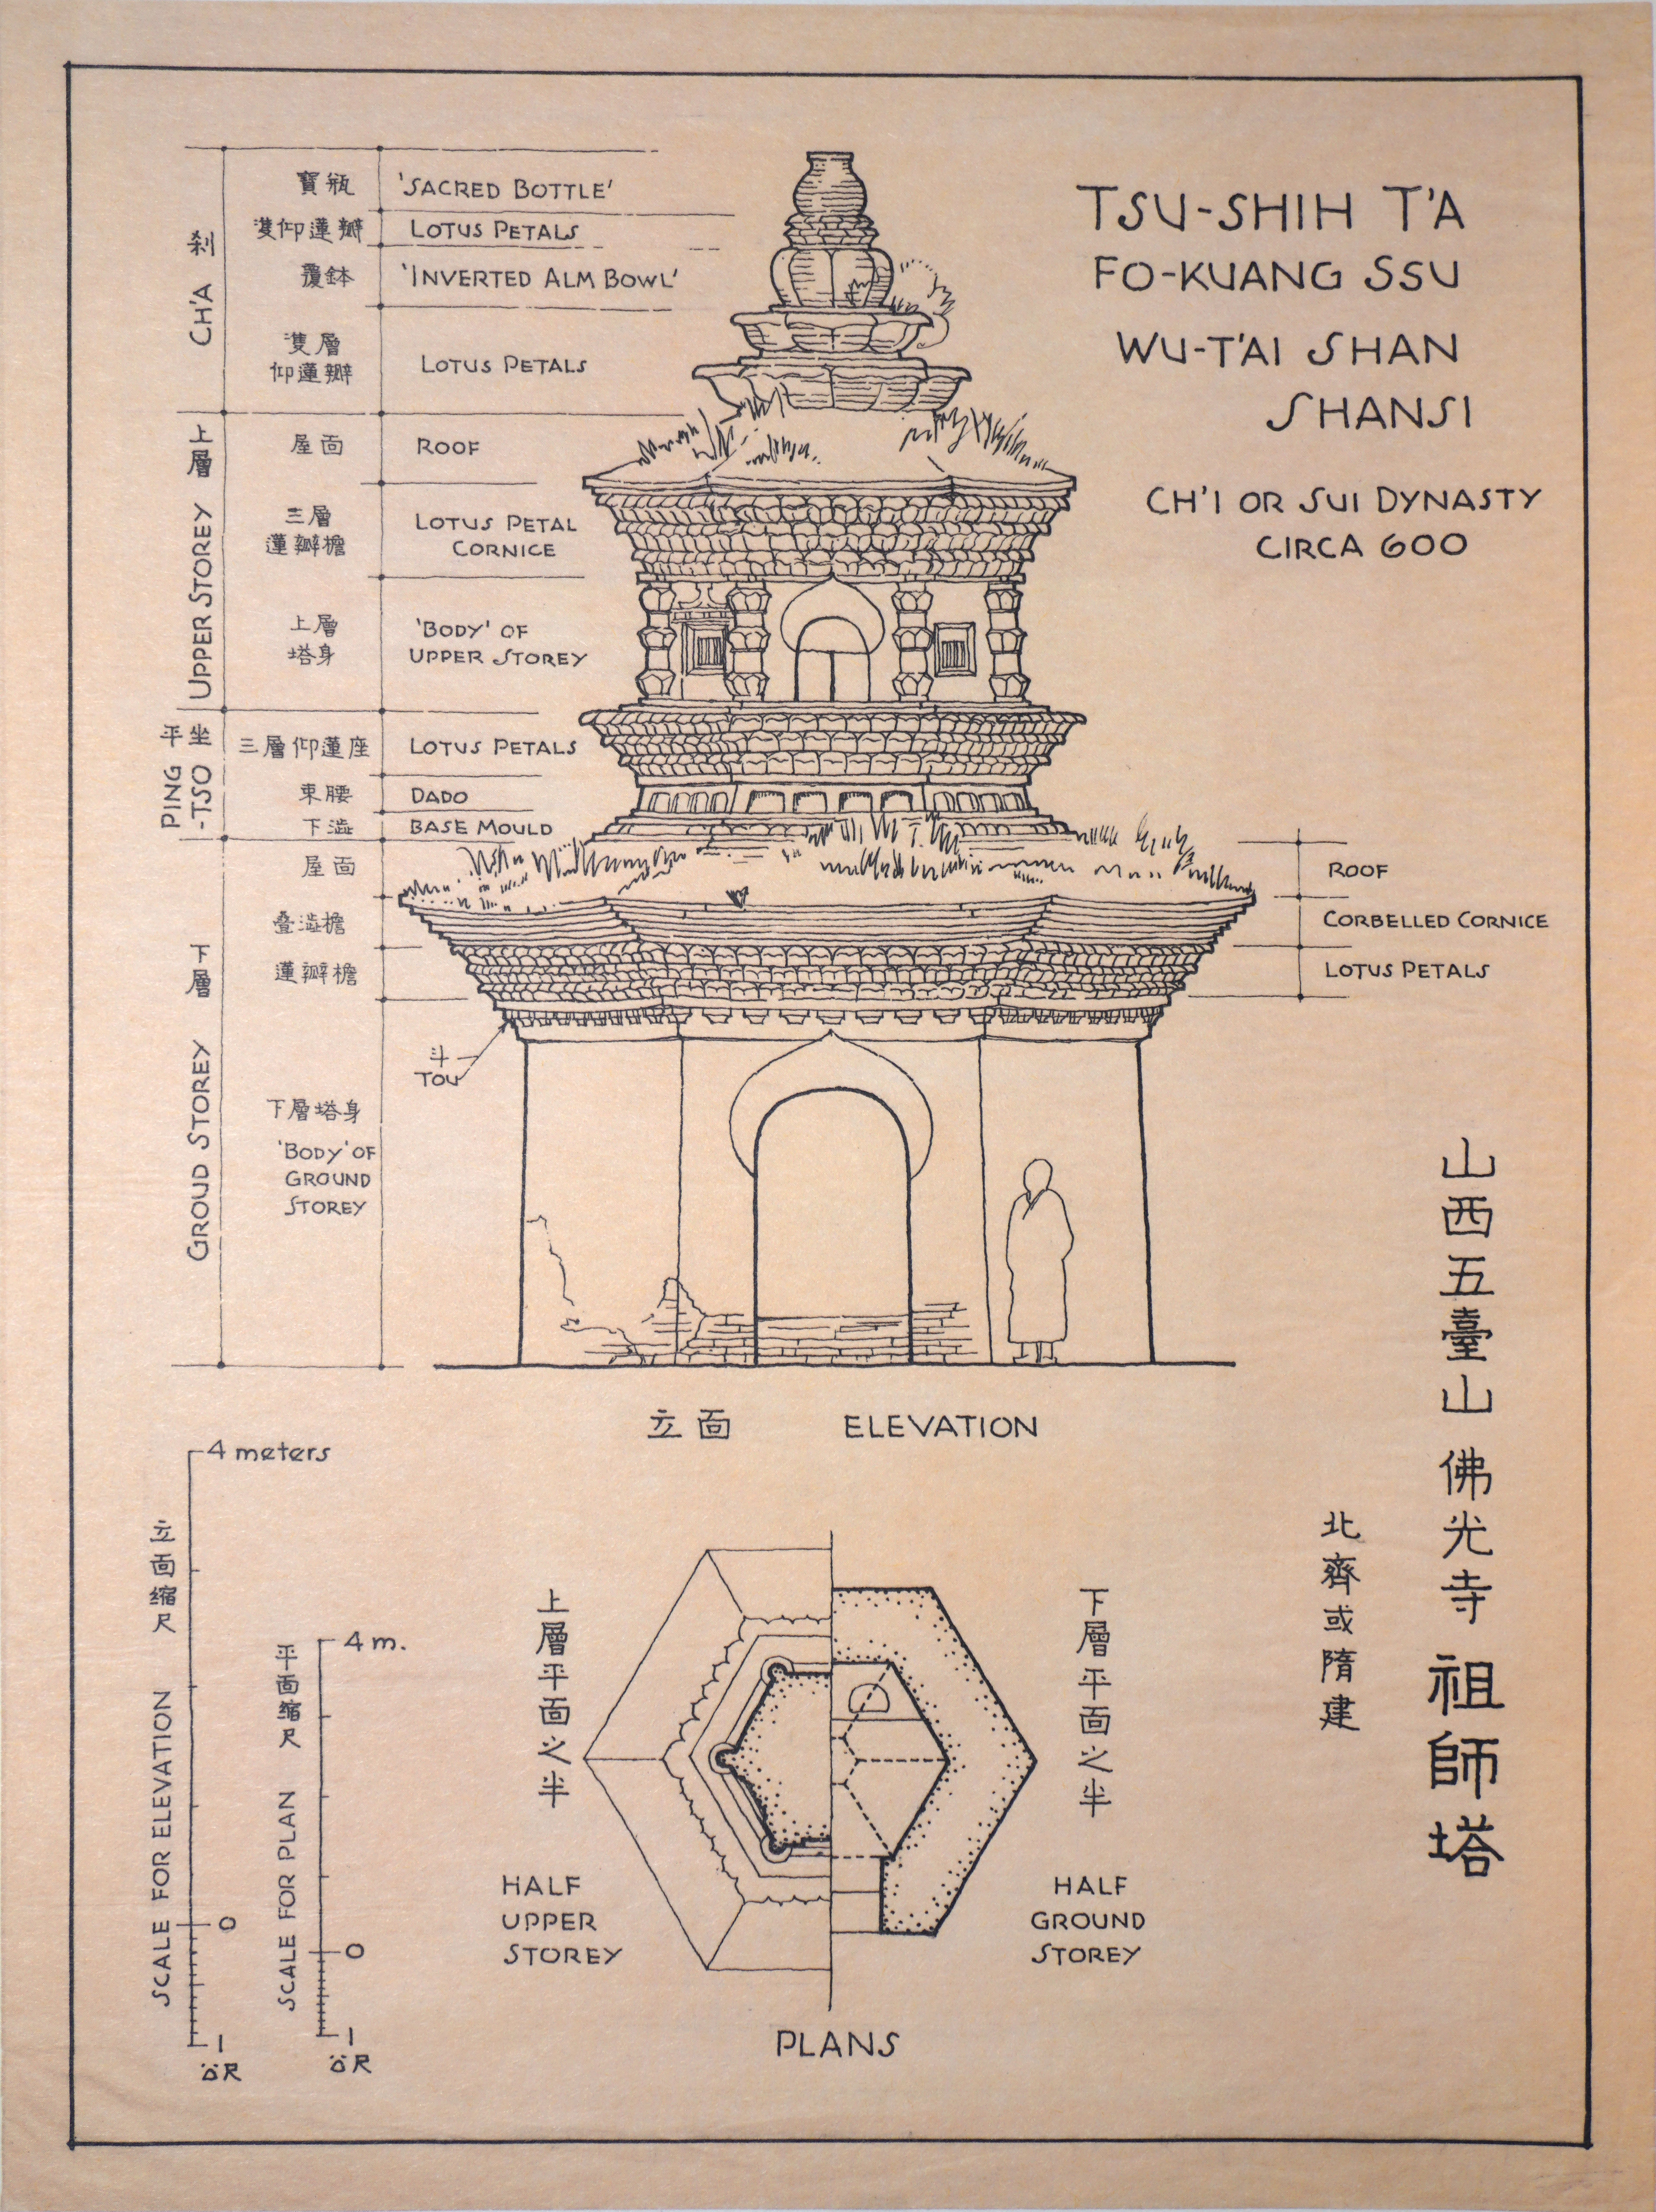 TSU-SHIH T'A
FO-KUANG SSU
WU-T'AI SHAN
SHANSI
CH'I OR SUI DYNASTY
CIRCA 600
刹
CH'A
寶瓶
'SACRED BOTTLE'
雙仰蓮瓣
LOTUS PETALS
覆鉢
'INVERTED ALM BOWL'
雙層
仰蓮瓣
LOTUS PETALS
上層
UPPER STOREY
屋面
ROOF
三層
蓮瓣檐
LOTUS PETAL
CORNICE
上層
塔身
'BODY' OF
UPPER STOREY
平坐
PING
-TSO
三層仰蓮座
LOTUS PETALS
束腰
DADO
下澁
BASE MOULD
下層
GROUD STOREY
屋面
ROOF
叠澁檐
CORBELLED CORNICE
蓮瓣檐
LOTUS PETALS
斗
TOU
下層塔身
'BODY' OF
GROUND
STOREY
立面
ELEVATION
山西五臺山佛光寺祖師塔
北齊或隋建
4 meters
立面缩尺
SCALE FOR ELEVATION
0
1
尺
4 m.
平面缩尺
SCALE FOR PLAN
0
1
尺
上層平面之半
HALF
UPPER
STOREY
下層平面之半
HALF
GROUND
STOREY
PLANS